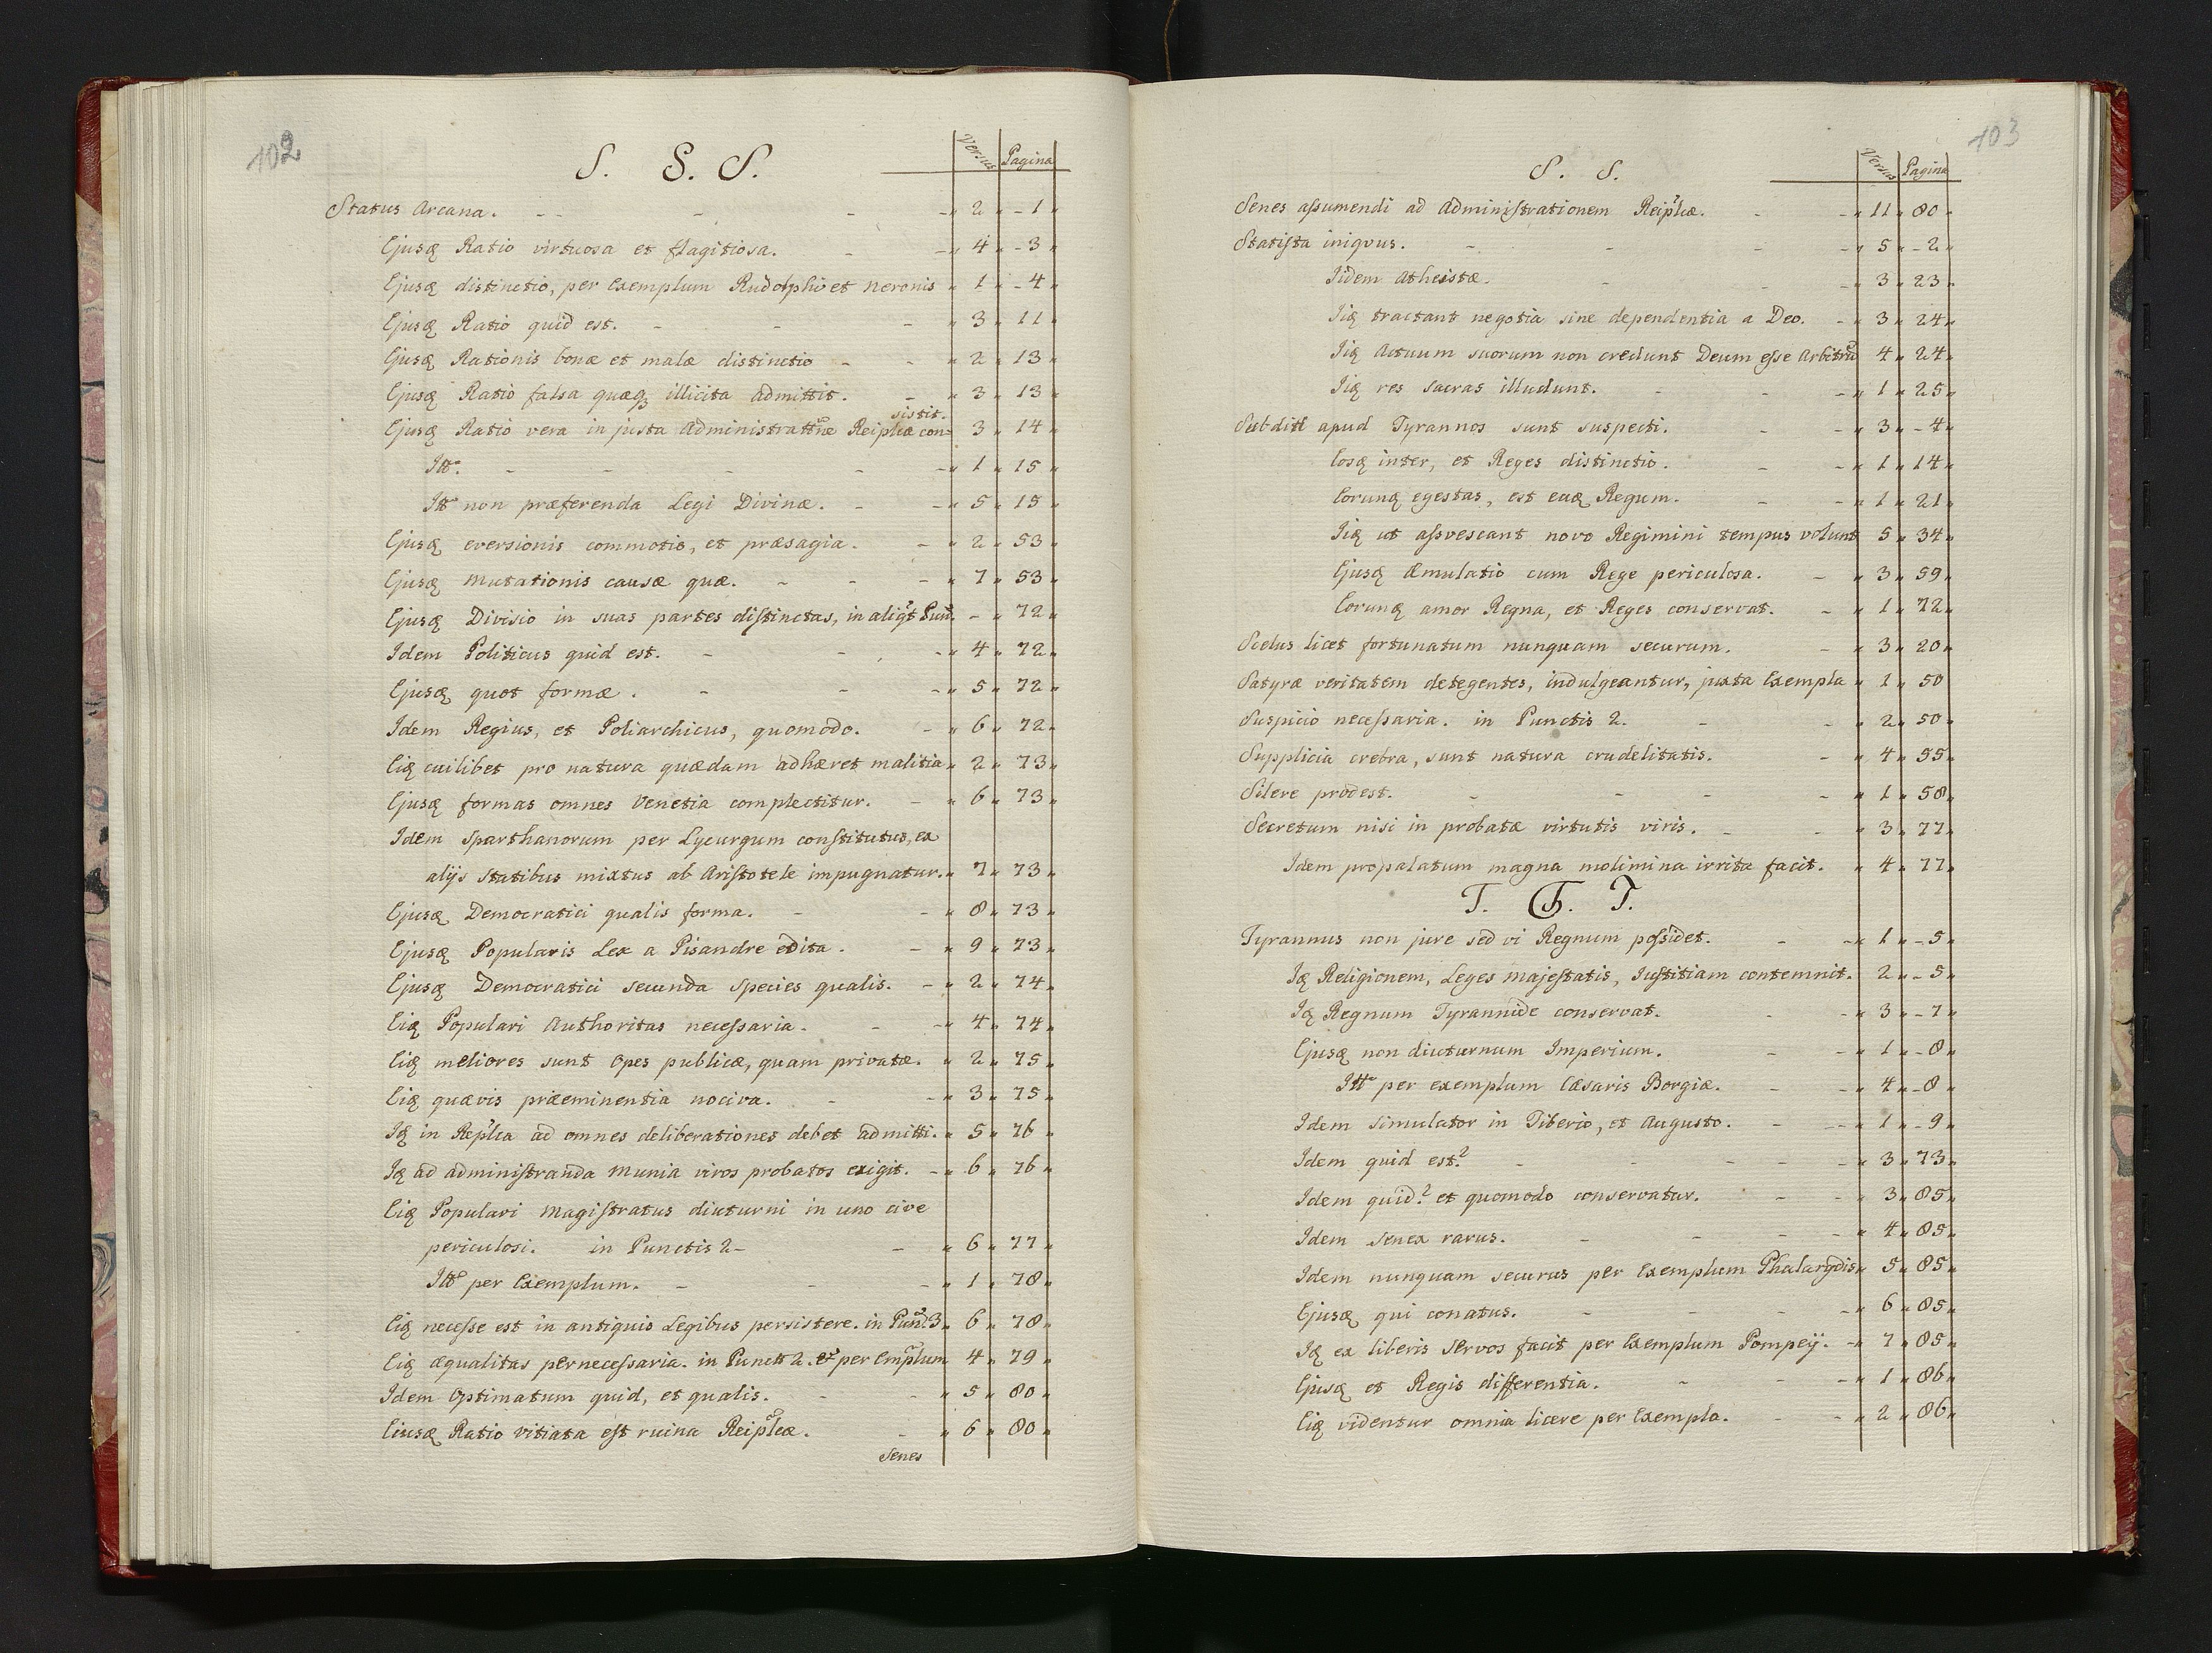 102
S. S. S.
Versus Pagina
Status Arcana. 2 1
Ejusq Ratio virtuosa et flagitiosa. 4 3
Ejusq distinctio, per Exemplum Rudolphi et Neronis 1 4
Ejusq Ratio quid est. 3 11
Ejusq Rationis bonæ et malæ distinctio 2 13
Ejusq Ratio falsa quæq illicita admittit. 3 13
sistit.
Ejusq Ratio vera in justa Administratne Reiplicæ con= 3 14
Itt. 1 15
Itt non præferenda Legi Divinæ. 5 15
Ejusq eversionis commotio, et præsagia. 2 53
Ejusq Mutationis causæ quæ. 7 53
Ejusq Divisio in suas partes distinctas, in aliqt - 72
Idem Politicus quid est. 4 72
Ejusq quot formæ. 5 72
Idem Regius, et Poliarchicus, quomodo. 6 72
Eiq cuilibet pro natura quædam adhæret malitia 2 73
Ejusq formas omnes Venetia complectitur. 6 73
Idem Sparthanorum per Lycurgum constitutus, ex
alijs statibus mixtus ab Aristotele impugnatur. 7 73
Ejusq Democratici qualis forma. 8 73
Ejusq Popularis Lex a Pisandre edita. 9 73
Ejusq Democratici secunda species qualis. 2 74
Eiq Populari Authoritas necessaria. 4 74
Eiq meliores sunt opes publicæ, quam privatæ. 2 75
Eiq quævis præeminentia nociva. 3 75
Iq in Replca ad omnes deliberationes debet admitti. 5 76
Iq ad administranda Munia viros probatos exigit. 6 76
Eiq Populari Magistratus diuturni in uno cive
periculosi. in Punctis 2 6 77
Itt per Exemplum. 1 78
Eiq necesse est in antiquis Legibus persistere. in Punct 3 6 78
Eiq æqualitas pernecessaria. in Punctt 2. et per Emplum 4 79
Idem Optimatum quid, et qualis. 5 80
Eiusq Ratio vitiata est ruina Reiplcæ. 6 80
Senes
103
S. S.
Versus Pagina
Senes assumendi ad Administrationem Reiplcæ. 11 80
Statista iniqvus. 5 2
Iidem Atheistæ. 3 23
Iiq tractant negotia sine dependentia a Deo. 3 24
Iiq Actuum suorum non credunt Deum esse Arbitru 4 24
Iiq res sacras illudunt. 1 25
Subditi apud Tyrannos sunt suspecti. 3 4
Eosq inter, et Reges distinctio. 1 14
Corunq egestas, est eaq Regum. 1 21
Iiq ut assvescant novo Regimini tempus volunt 5 34
Ejusq Æmulatio cum Rege periculosa. 3 59
Corunq amor Regna, et Reges conservat. 1 72
Scelus licet fortunatum nunquam securum. 3 20
Satyræ veritatem detegentes, indulgeantur, juxta Exempla 1 50
Suspicio necessaria. in Punctis 2. 2 50
Supplicia crebra, sunt natura crudelitatis. 4 55
Silere prodest. 1 58
Secretum nisi in probatæ virtutis viris. 3 77
Idem propalatum magna molimina irrita facit. 4 77
T. T. T.
Tyrannus non jure sed vi Regnum possidet. 1 5
Iq Religionem, Leges majestatis, Justitiam contemnit. 2 5
Iq Regnum Tyrannide conservat. 3 7
Ejusq non diuturnum Imperium. 1 8
Itt per exemplum Cæsaris Borgiæ. 4 8
Idem simulator in Tiberio, et Augusto. 1 9
Idem quid est? 3 73
Idem quid? et quomodo conservatur. 3 85
Idem senex rarus. 4 85
Idem nunquam securus per Exemplum Phalarydis 5 85
Ejusq qui conatus. 6 85
Iq ex liberis servos facit per Exemplum Pompeij. 7 85
Ejusq et Regis differentia. 1 86
Eiq videntur omnia licere per Exempla. 2 86